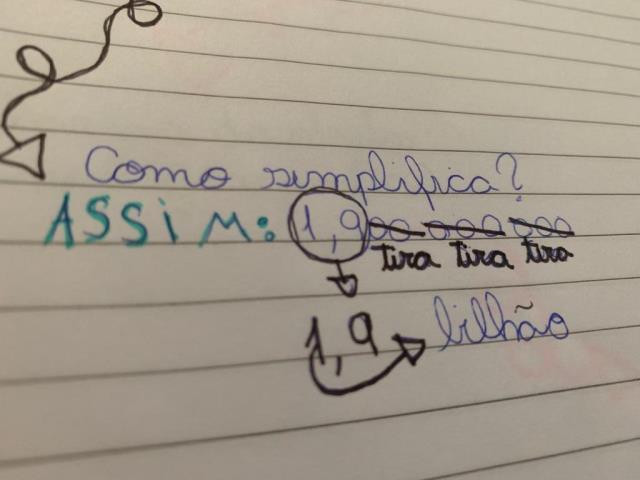 Como simplifica?
ASSIM: 1,900 000 000
tira tira tira
1,9 bilhão